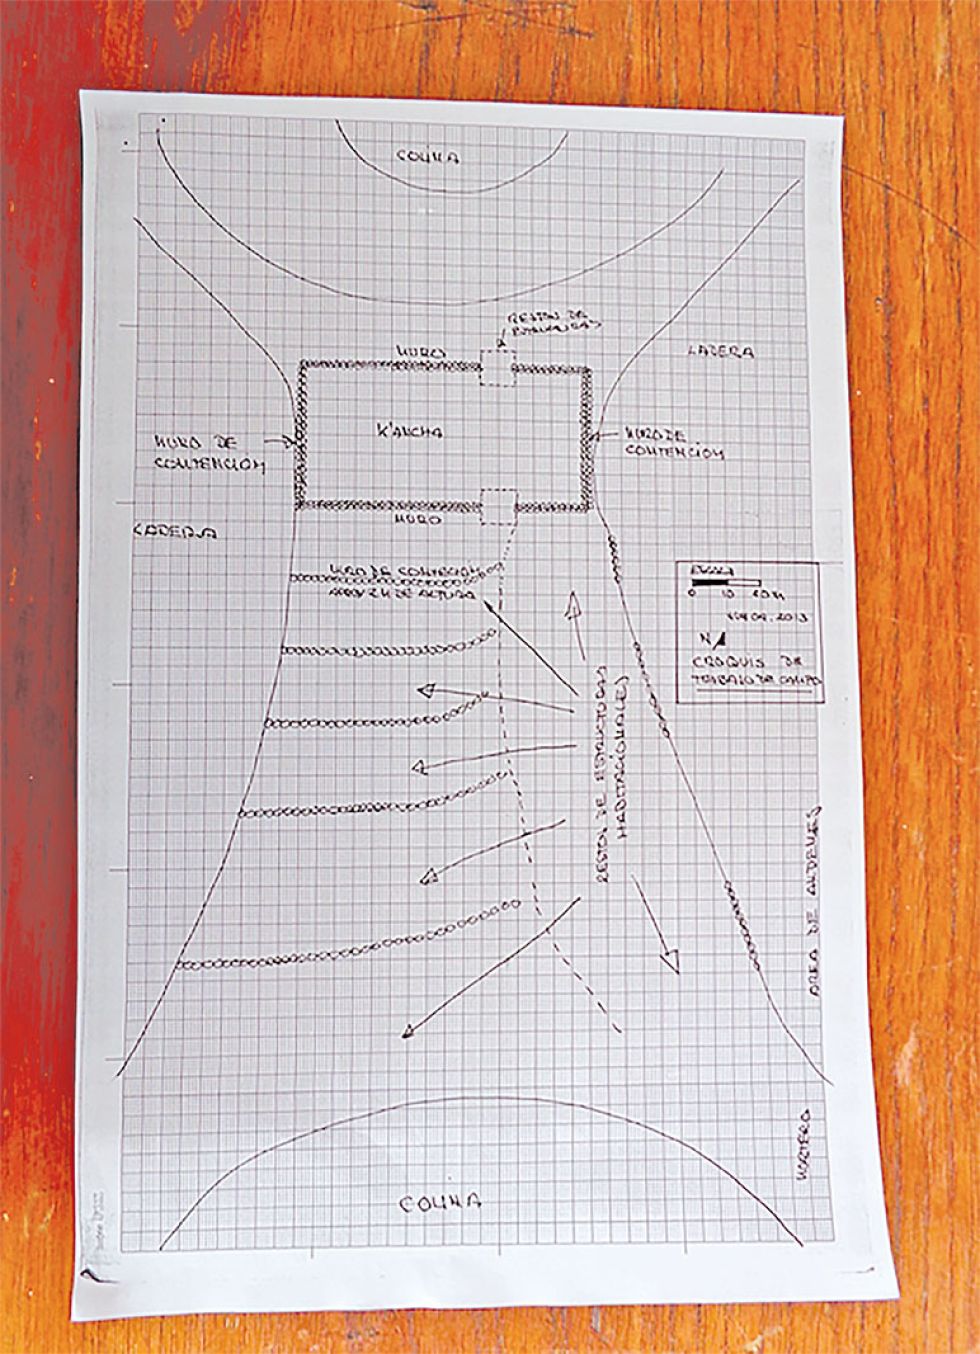 COLINA
RESTOS DE
MURO
LADERA
K'ANCHA
MURO DE
CONTENCION
MURO DE
CONTENCION
MURO
LADERA
MURO DE CONTENCION
APROX 2 M DE ALTURA
ESCALA
0 10 20 M
2013
N
CROQUIS DE
TRABAJO DE CAMPO
RESTOS DE ESTRUCTURAS
HABITACIONALES
AREA DE ANDENES
MORTERO
COLINA